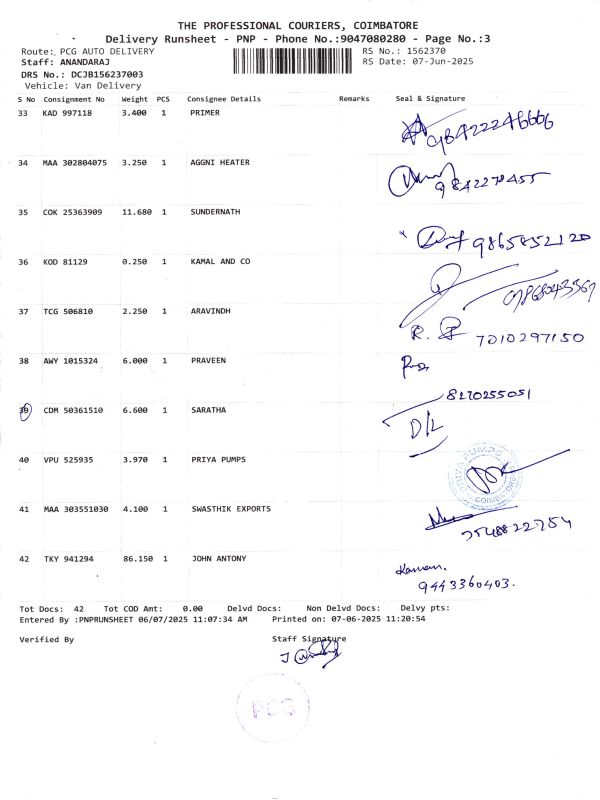 THE PROFESSIONAL COURIERS, COIMBATORE
Delivery Runsheet - PNP - Phone No.:9047080280 - Page No.:3
Route: PCG AUTO DELIVERY RS No.: 1562370
Staff: ANANDARAJ RS Date: 07-Jun-2025
DRS No.: DCJB156237003
Vehicle: Van Delivery
S No Consignment No Weight PCS Consignee Details Remarks Seal & Signature
33 KAD 997118 3.400 1 PRIMER
34 MAA 302804075 3.250 1 AGGNI HEATER
9842270455
35 COK 25363909 11.680 1 SUNDERNATH
9865852120
36 KOD 81129 0.250 1 KAMAL AND CO
37 TCG 506810 2.250 1 ARAVINDH
R. 7010297150
38 AWY 1015324 6.000 1 PRAVEEN
8270255051
39 CDM 50361510 6.600 1 SARATHA
D/L
40 VPU 525935 3.970 1 PRIYA PUMPS
PRIYA PUMPS COIMBATORE
41 MAA 303551030 4.100 1 SWASTHIK EXPORTS
7548822754
42 TKY 941294 86.150 1 JOHN ANTONY
9443360403.
Tot Docs: 42 Tot COD Amt: 0.00 Delvd Docs: Non Delvd Docs: Delvy pts:
Entered By :PNPRUNSHEET 06/07/2025 11:07:34 AM Printed on: 07-06-2025 11:20:54
Verified By Staff Signature
PCG